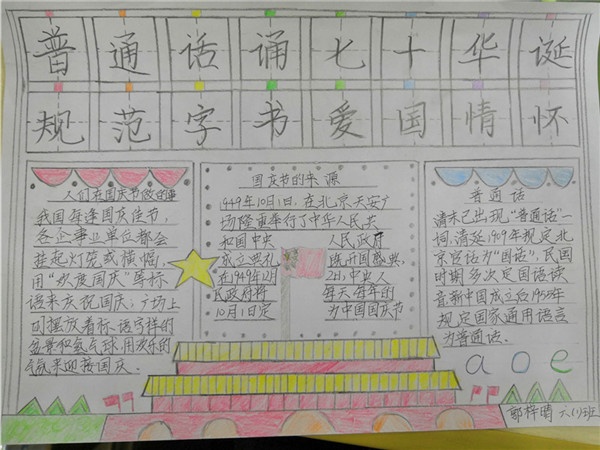 普通话诵七十华诞
规范字书爱国情怀
人们在国庆节做的事
我国每逢国庆佳节，
各企事业单位都会
挂起灯笼或横幅，
用“欢度国庆”等标
语来庆祝国庆；广场上
回摆放着标语字样的
盆景和氢气球，用欢乐的
气氛来迎接国庆．
国庆节的来源
1949年10月1日，在北京天安广
场隆重举行了中华人民共
和国中央 人民政府
成立典礼 既开国盛典，
在1949年12月 2日，中央人
民政府将 每天每年的
10月1日定 为中国国庆节
普通话
清末已出现“普通话”一
词，清廷1909年规定北
京官话为“国语”，民国
时期多次定国语读
音，新中国成立后1955年
规定国家通用语言
为普通话．
a o e
郭梓晴 六(1)班